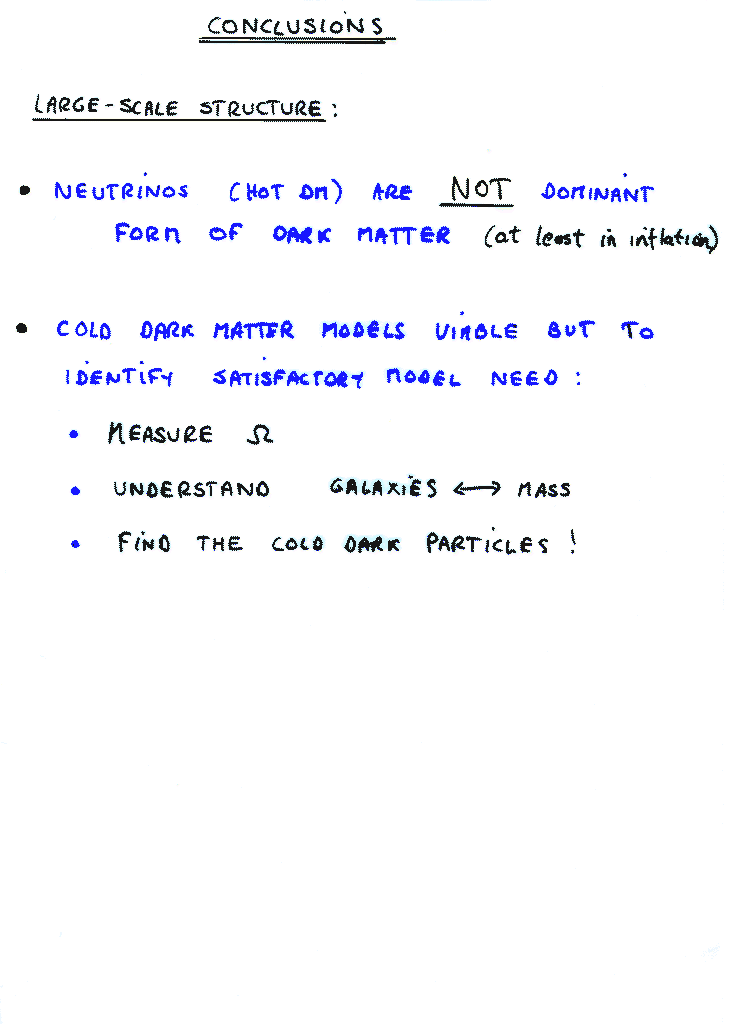 CONCLUSIONS
LARGE-SCALE STRUCTURE:
• NEUTRINOS (HOT DM) ARE NOT DOMINANT
FORM OF DARK MATTER (at least in inflation)
• COLD DARK MATTER MODELS VIABLE BUT TO
IDENTIFY SATISFACTORY MODEL NEED:
• MEASURE Ω
• UNDERSTAND GALAXIES ↔ MASS
• FIND THE COLD DARK PARTICLES!